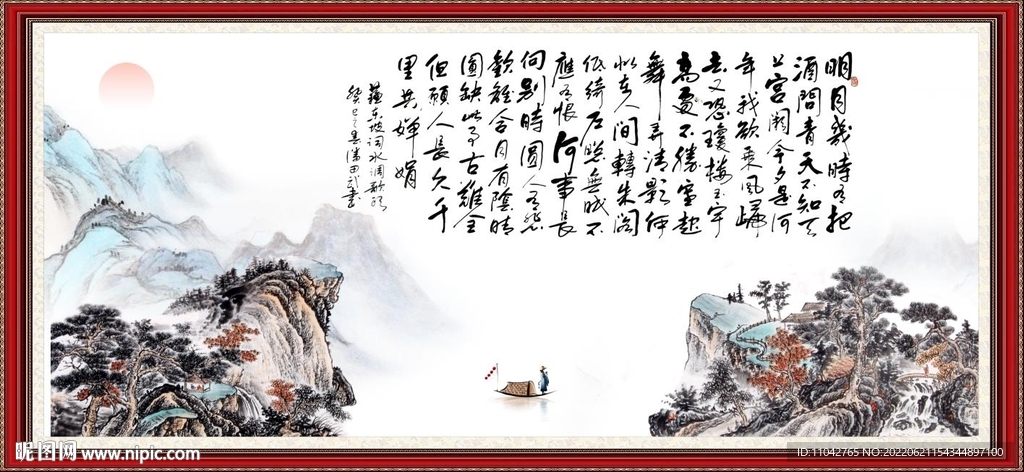 明月幾時有把
酒問青天不知天
上宮闕今夕是何
年我欲乘風歸
去又恐瓊樓玉宇
高處不勝寒起
舞弄清影何
似在人間轉朱閣
低綺户照無眠不
應有恨何事長
向别時圓人有悲
歡離合月有陰晴
圓缺此事古難全
但願人長久千
里共嬋娟
蘇東坡詞水調歌頭
昵图网 www.nipic.com
ID:11042765 NO:20220621154344897100